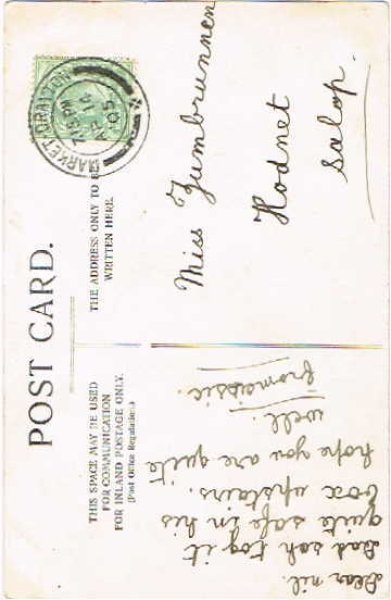 POST CARD.
THE ADDRESS ONLY TO BE
WRITTEN HERE.
THIS SPACE MAY BE USED
FOR COMMUNICATION
FOR INLAND POSTAGE ONLY.
(Post Office Regulations.)
MARKET DRAYTON
PM
AP
05
Miss Zumbrunnen
Hodnet
Salop.
Dear nil.
it
quite safe in his
box upstairs.
hope you are quite
well.
from Cissie.